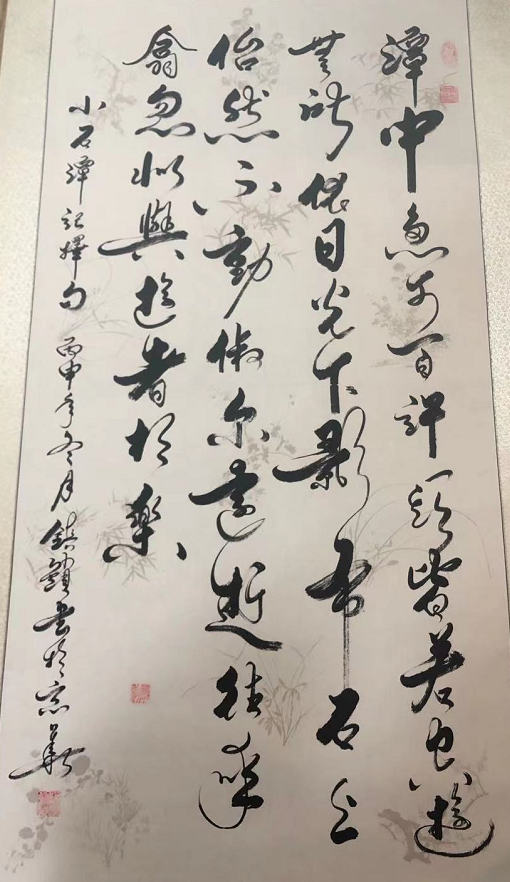 潭中魚可百許頭皆若空遊
無所依日光下影布石上
佁然不動俶尔遠逝往來
翕忽似與遊者相樂
小石潭記擇句 丙申年冬月 書於京華